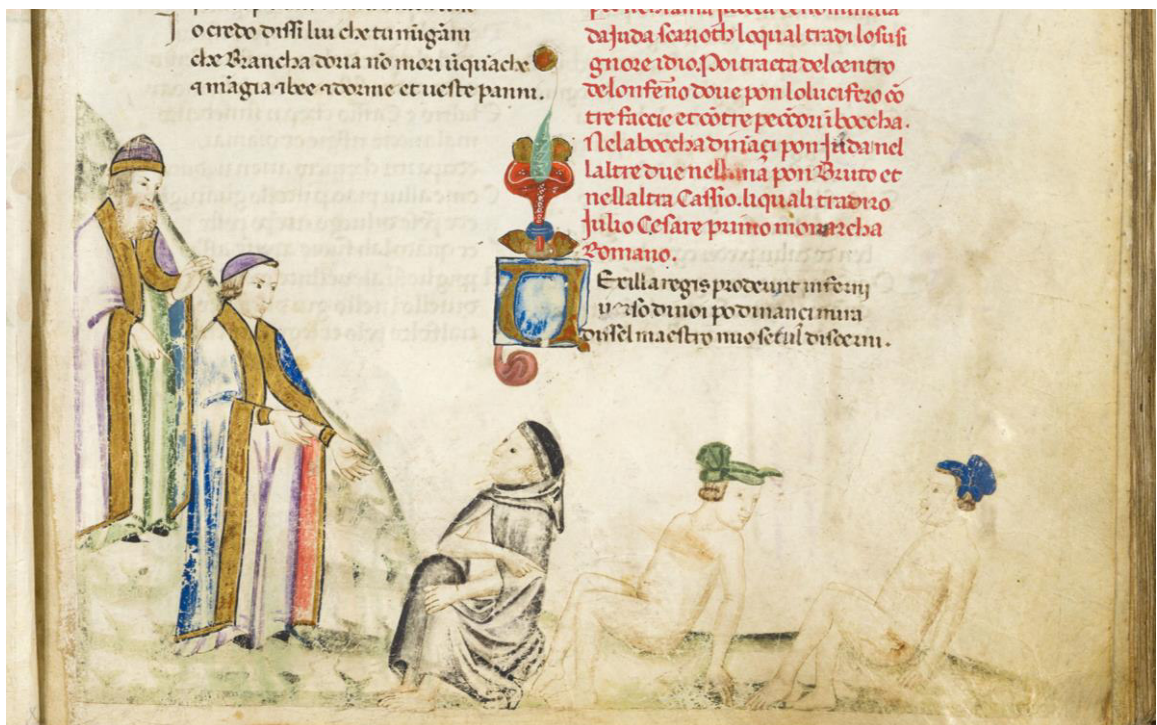 Jo credo dissi lui che tu mīgāni
che Brancha doria nō mori ūquāche
⁊ māgia ⁊ bee ⁊ dorme et ueste panni.
da Juda scarioth loqual tradi losusi
gnore idio. Poi tracta del centro
delonferño doue pon lolucifero cō
tre faccie et cō tre peccori ī boccha.
Nela boccha dināçi pon Juda nel
laltre due nella pon Bruto et
nellaltra Cassio. liquali tradiro
Julio Cesare primo monarcha
Romano.
Vexilla regis prodeunt inferni
uerso dinoi po dinanci mira
dissel maestro mio setul discerni.